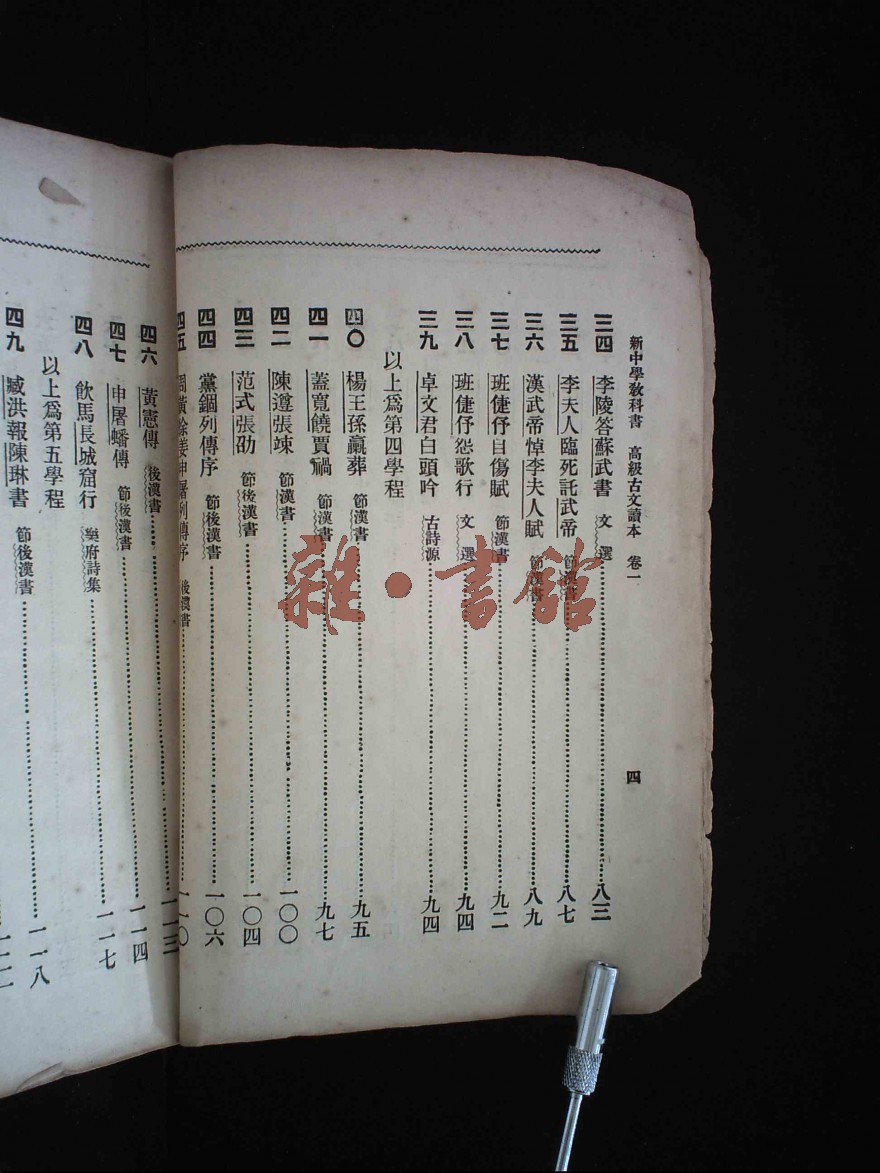 新中學教科書 高級古文讀本 卷一 四
三四 李陵答蘇武書 文選 八三
三五 李夫人臨死託武帝 節漢書 八七
三六 漢武帝悼李夫人賦 節漢書 八九
三七 班倢伃自傷賦 節漢書 九二
三八 班倢伃怨歌行 文選 九四
三九 卓文君白頭吟 古詩源 九四
以上爲第四學程
四〇 楊王孫臝葬 節漢書 九五
四一 蓋寬饒賈禍 節漢書 九七
四二 陳遵張竦 節漢書 一〇〇
四三 范式張劭 節後漢書 一〇四
四四 黨錮列傳序 節後漢書 一〇六
四五 周黃徐姜申屠列傳序 後漢書 一一〇
四六 黃憲傳 後漢書 一一三
四七 申屠蟠傳 節後漢書 一一四
四八 飲馬長城窟行 樂府詩集 一一七
以上爲第五學程
四九 臧洪報陳琳書 節後漢書 一一八
雜·書館